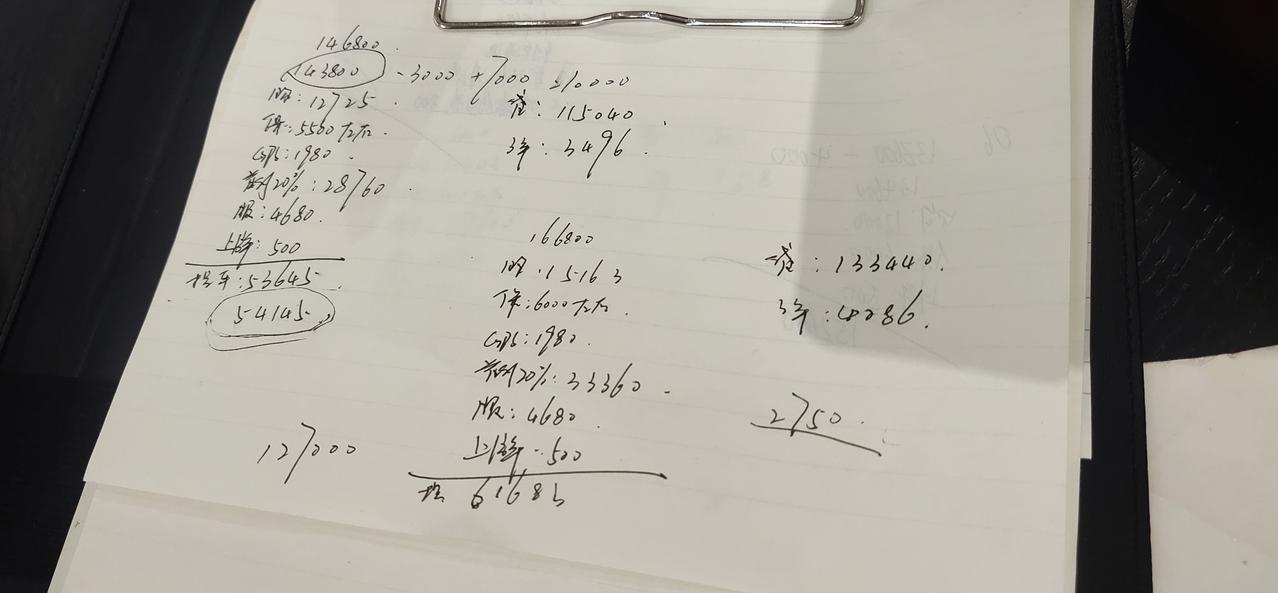 146800.
143800 -3000 +7000 =10000
购:12725.
保:5500左右.
GPS:1980.
首付20%:28760.
服:4680.
上牌:500
提车:53645.
54145
贷:115040.
3年:3496.
166800
购:15163
保:6000左右.
GPS:1980.
首付20%:33360.
服:4680.
上牌:500
提 61683
贷:133440.
3年:
2750.
127000